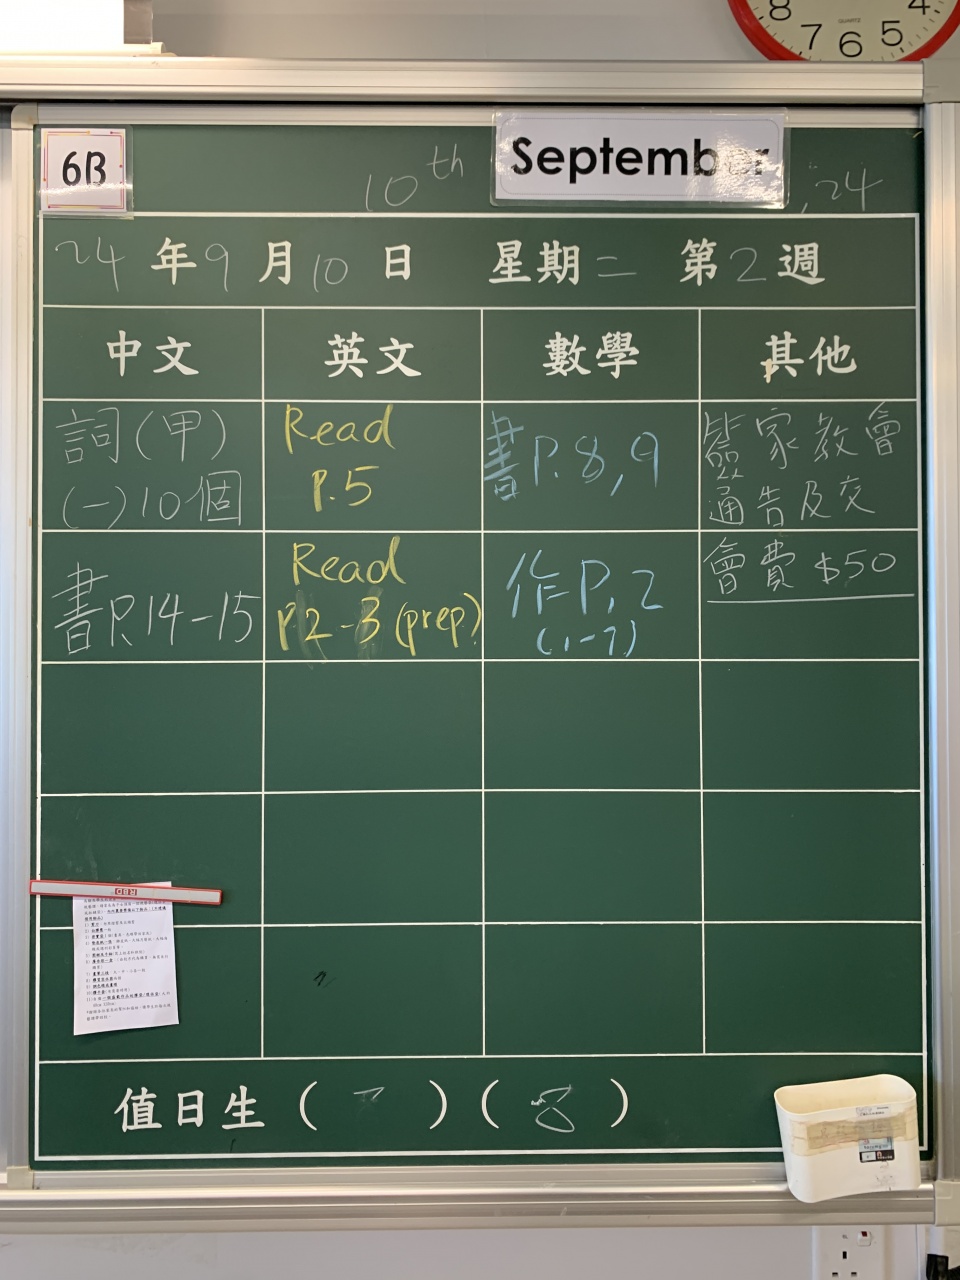 8 7 6 5 4
QUARTZ
6B
10th September , 24
24 年 9 月 10 日 星期二 第 2 週
中文 英文 數學 其他
詞(甲)
(一)10個
Read
P.5
書P.8,9
簽家教會
通告及交
會費 $50
書P.14-15
Read
P.2-3 (prep)
作P.2
(1-7)
RBD
值日生 ( 7 ) ( 8 )